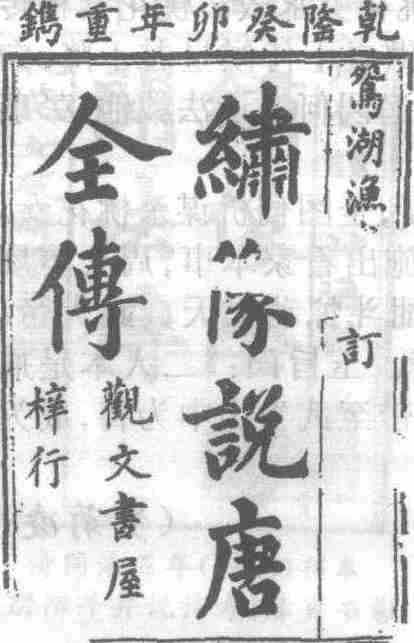 乾隆癸卯年重鐫
鴛湖漁
訂
繡像説唐
全傳
觀文書屋
梓行